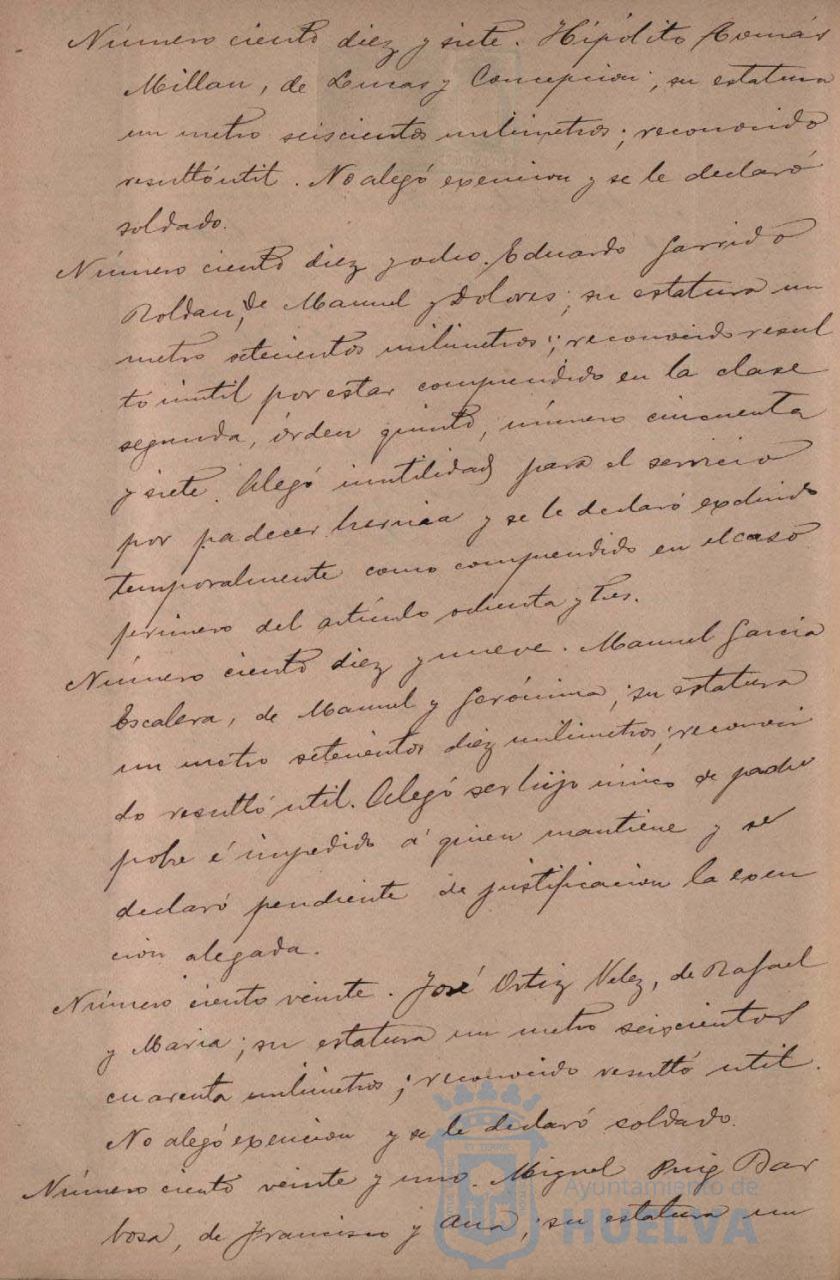 Número ciento diez y siete. Hipólito Comás
Millan, de Lucas y Concepcion; su estatura
un metro seiscientos milimetros; reconocido
resultó util. No alegó exencion y se le declaró
soldado.
Número ciento diez y ocho. Eduardo Garrido
Roldan, de Manuel y Dolores; su estatura un
metro setecientos milimetros; reconocido resul
tó inutil por estar comprendido en la clase
segunda, órden quinto, número cincuenta
y siete. Alegó inutilidad para el servicio
por padecer hernia y se le declaró excluido
temporalmente como comprendido en el caso
primero del artículo ochenta y tres.
Número ciento diez y nueve. Manuel Garcia
Escalera, de Manuel y Gerónima; su estatura
un metro setecientos diez milimetros; reconoci
do resultó util. Alegó ser hijo único de padre
pobre é impedido á quien mantiene y se
declaró pendiente de justificacion la exen
cion alegada.
Número ciento veinte. José Ortiz Velez, de Rafael
y Maria; su estatura un metro seiscientos
cuarenta milimetros; reconocido resultó util.
No alegó exencion y se le declaró soldado.
Número ciento veinte y uno. Miguel Puig Bar
bosa, de Francisco y Ana; su estatura un
Ayuntamiento de
HUELVA